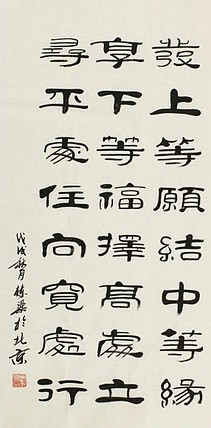 發上等願結中等緣
享下等福擇高處立
尋平處住向寬處行
戊戌秋月於北京